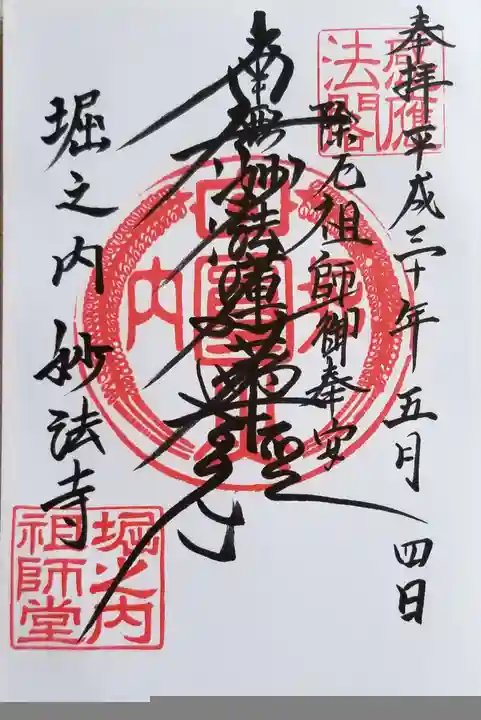 奉拝平成三十年五月四日
除厄祖師御奉安
南無妙法蓮華経
堀之内妙法寺
感應
法閣
堀之内
祖師堂